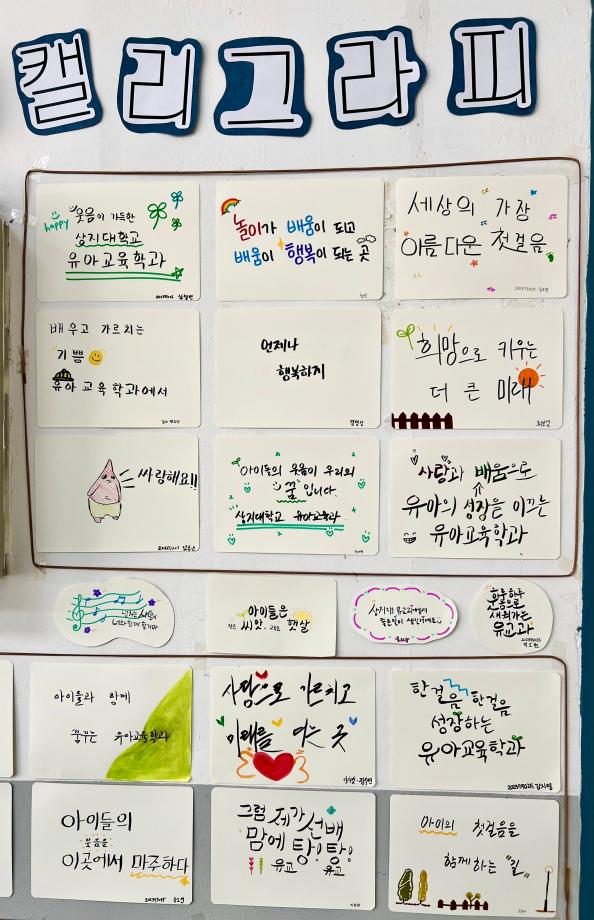 캘리그라피
happy 웃음이 가득한
상지대학교
유아교육학과
놀이가 배움이 되고
배움이 행복이 되는 곳
세상의 가장
아름다운 첫걸음
배우고 가르치는
기쁨
유아교육학과에서
언제나
행복하기
희망으로 키우는
더 큰 미래
싸랑해요!!
아이들의 웃음이 우리의
꿈입니다.
상지대학교 유아교육학과
사랑과 배움으로
유아의 성장을 이끄는
유아교육학과
아이들은
작은 씨앗, 햇살
상지대 유교과에서
하루하루
웃음으로
새워가는
유교과
아이들과 함께
꿈꾸는 유아교육학과
사랑으로 가르치고
미래를 여는 곳
한걸음 한걸음
성장하는
유아교육학과
아이들의
웃음을
이곳에서 마주하다
그럼 제가 선배
맘에 탕!탕!
유교 유교
아이의 첫걸음을
함께하는 "길"